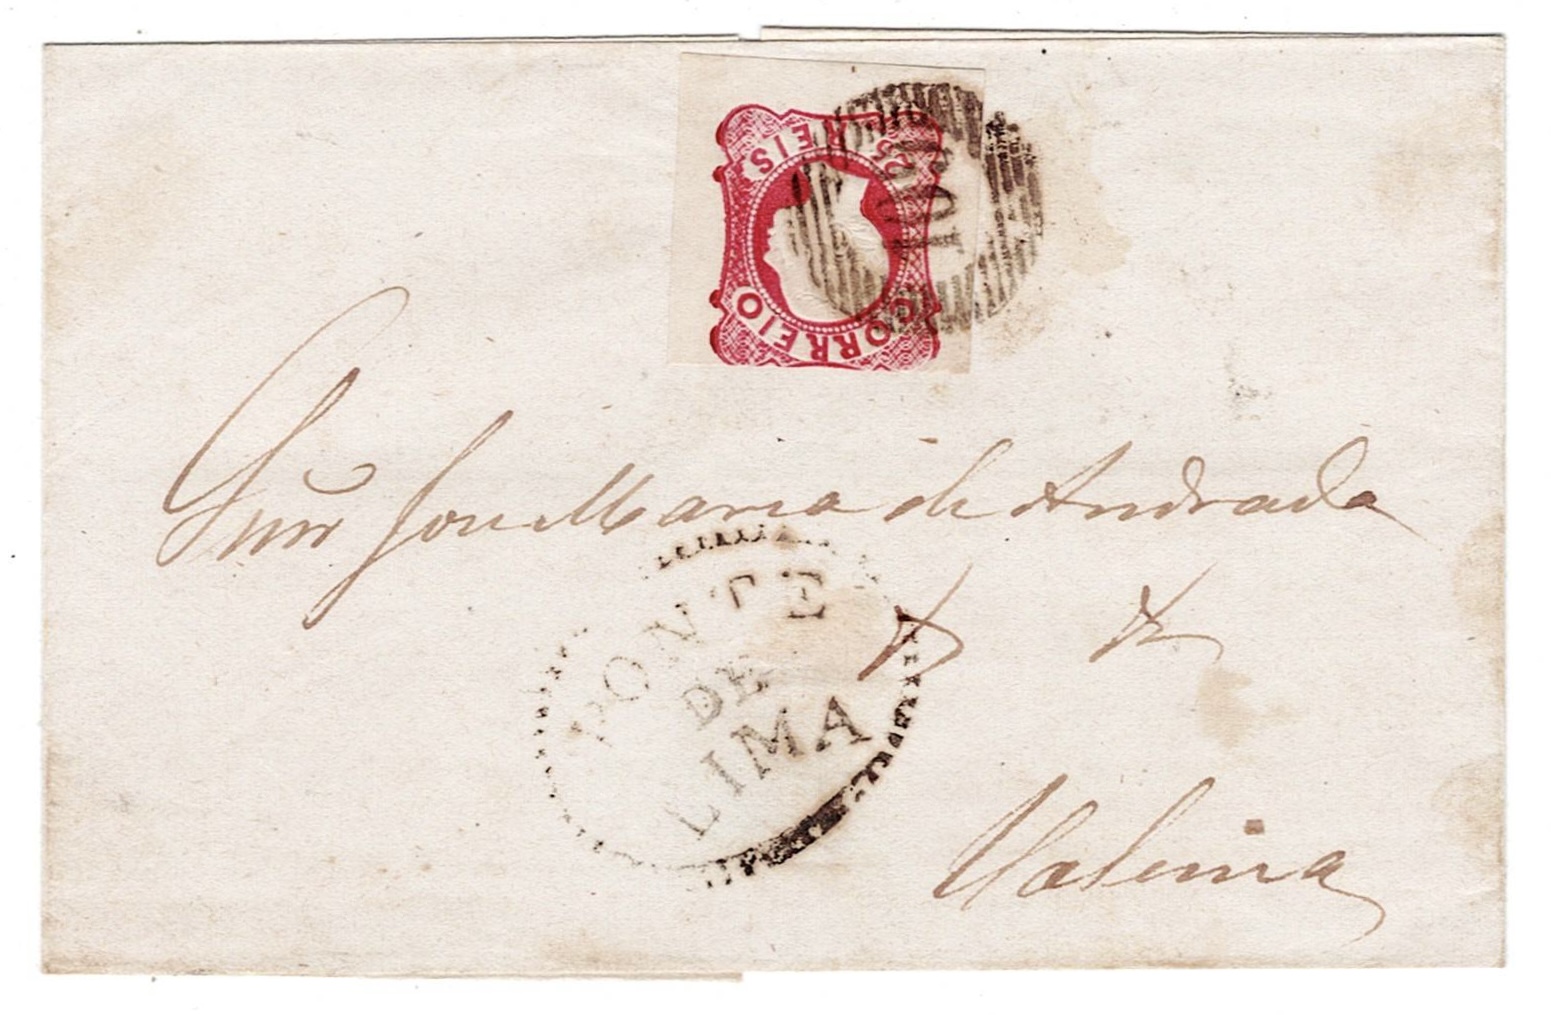 25 REIS
CORREIO
109
Snr José Maria de Andrade
&c &c
PONTE
DE
LIMA
Valença